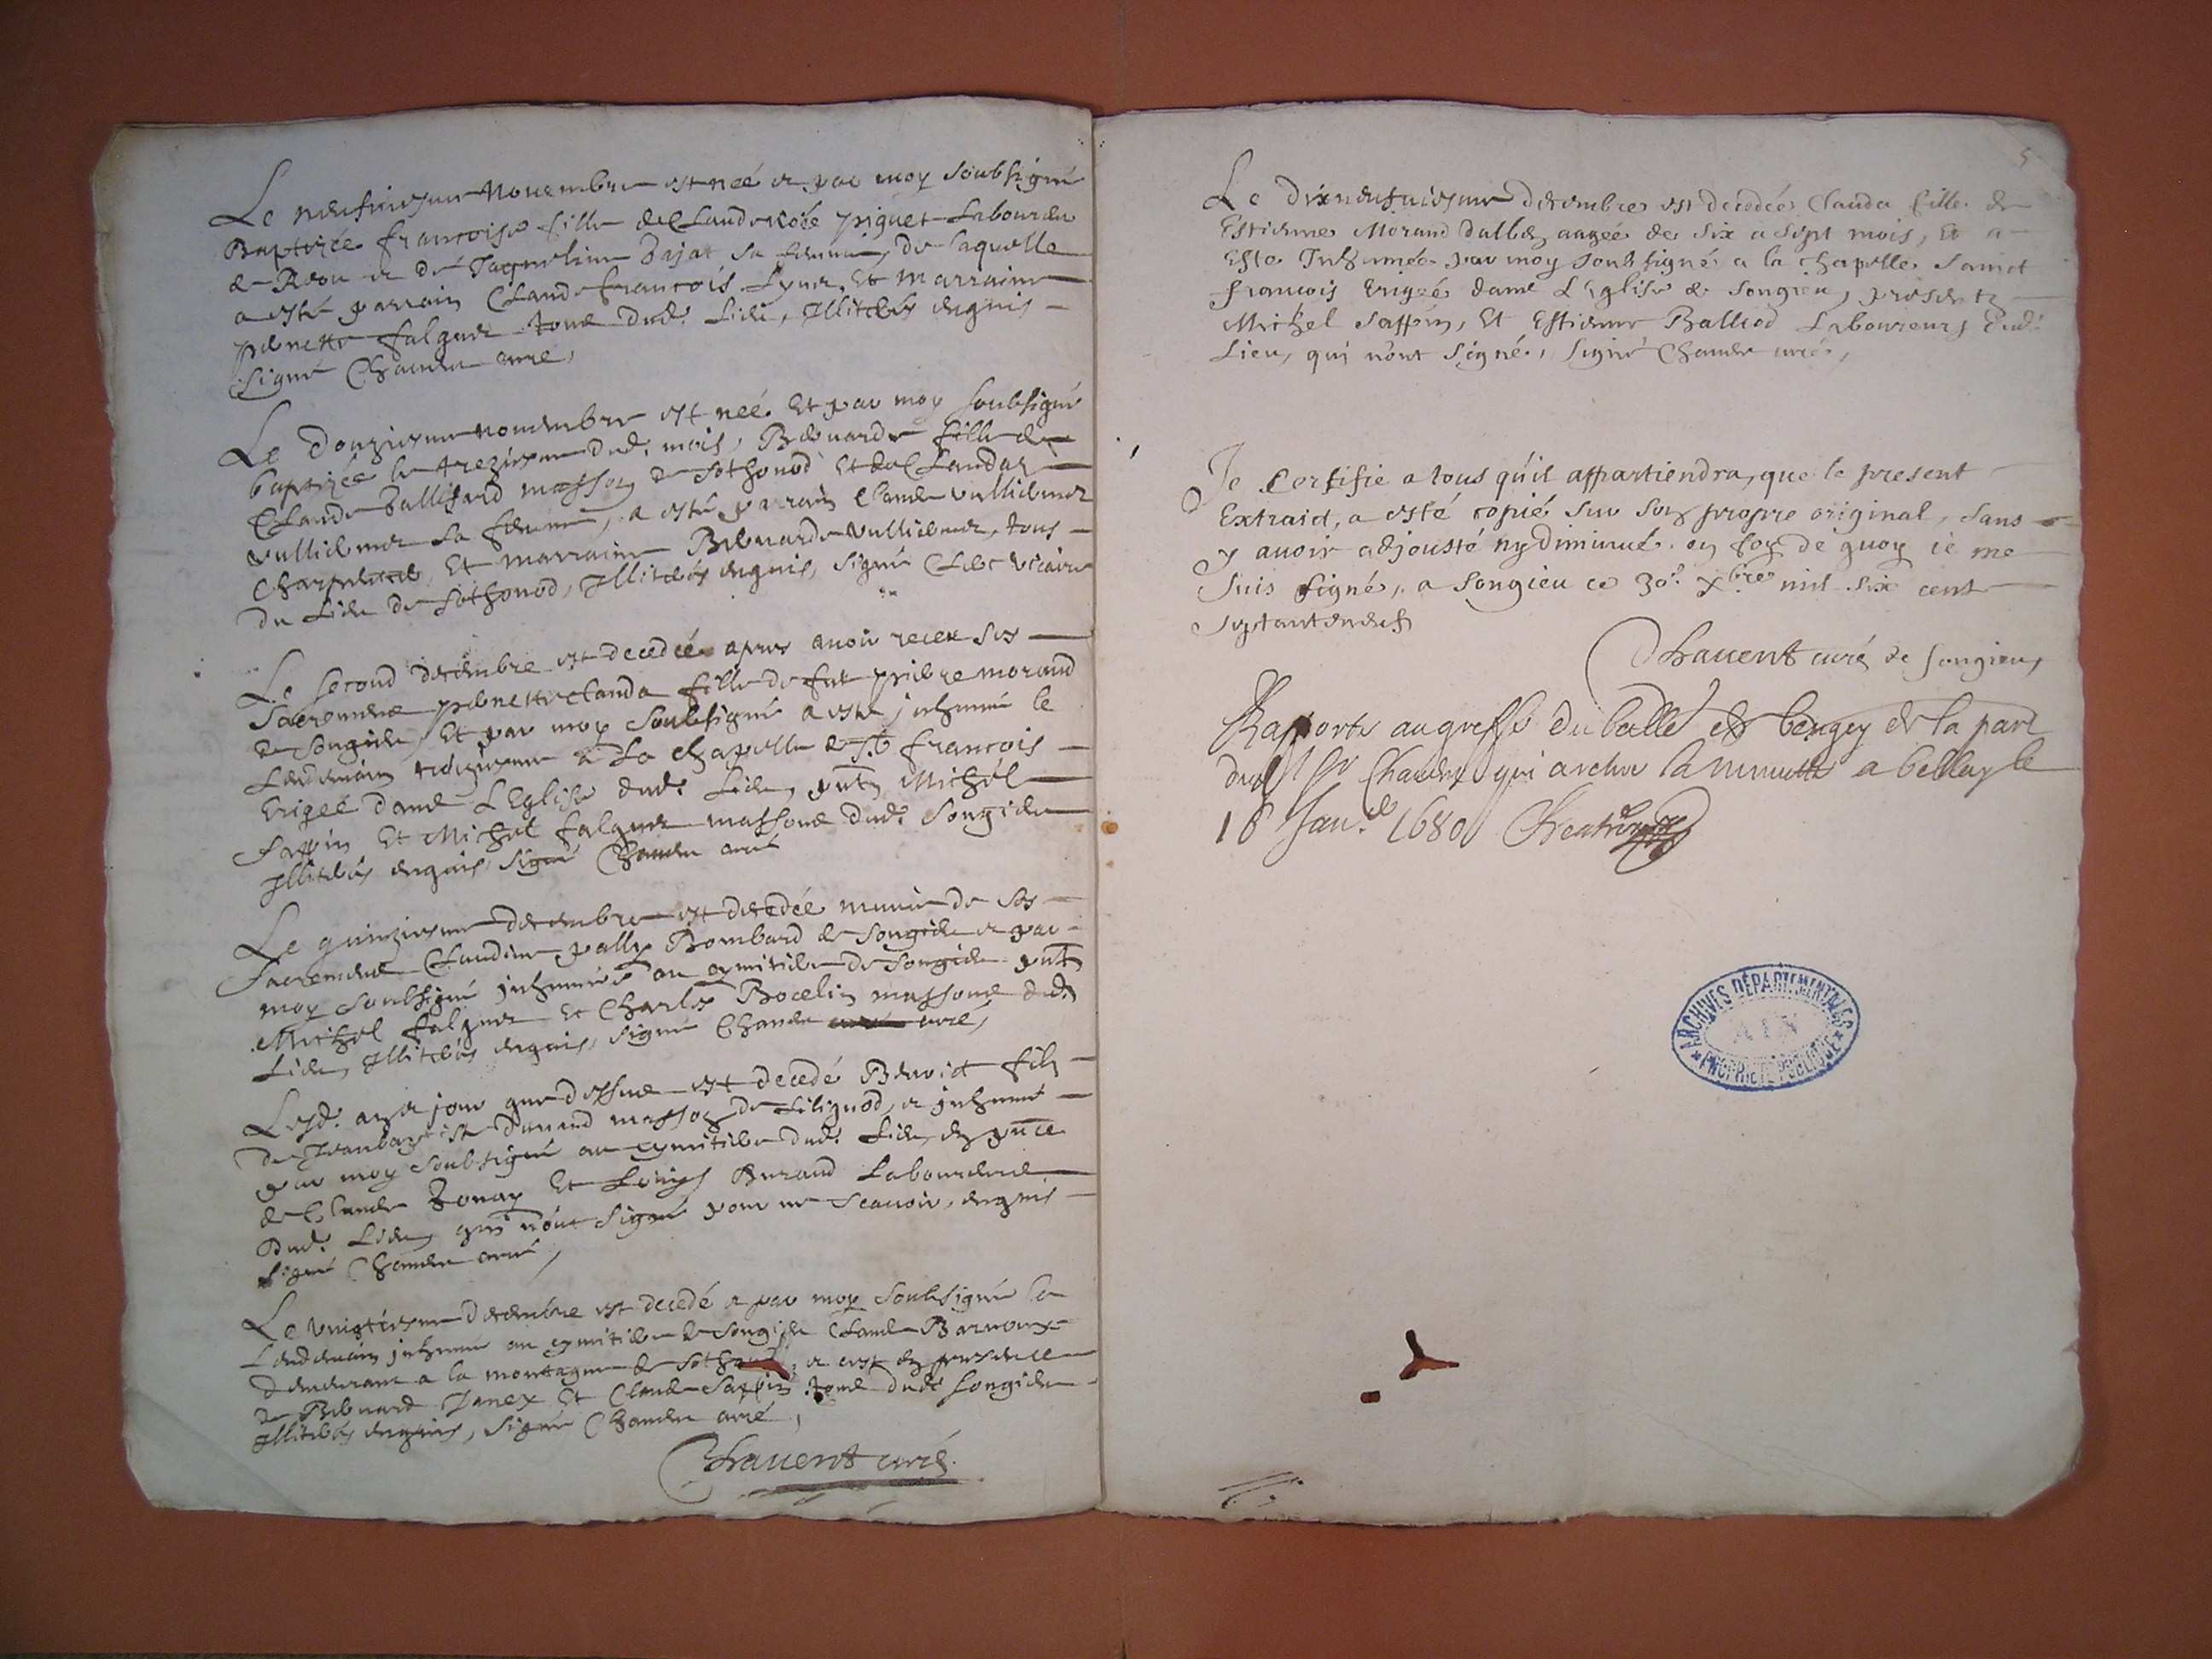 Le neufuiesme Nouembre est neé et par moy soubsigné
Baptizée françoise fille de Claude Roze piguet Laboureur
de Rdou et de Jaqueline Bajat sa femme, de laquelle
a esté parrain Claude françois Lyner, Et Marraine
pernette falquer tous dud. Lieu, Illiterés enquis
signé Chauen curé,
Le Douziesme nouembre est neé Et par moy soubsigné
baptizée le treziesme dud. mois, Bernarde fille de
Claude Ballifard masson de Sothonod Et de Clauda
Vulliermer sa femme, a esté parrain Claude Vulliermer
Charpentier, Et marraine Bernarde Vulliermer, tous
du Lieu de Sothonod, Illiterés enquis, signé vicaire
Le second decembre est decedée apres auoir receu ses
Sacremens pernette Clauda fille de feu pierre morand
de Songieu, Et par moy soubsigné a esté inhumé le
Lendemain troiziesme a La chapelle de St françois
Erigeé dans L'Eglise dud. Lieu, pnts Michel
Sappin Et Michel falquer massons dud. Songieu
Illiterés enquis, signé Chauen curé
Le quinziesme decembre est decedée munie de ses
Sacremens Claudine pally Bombard de Songieu et par
moy soubsigné inhumée au cymitiere de Songieu pnts
Michel falquer Et Charles Bocelin massons dud.
Lieu, Illiterés enquis, signé Chauen curé,
Lesd. an et jour que dessus est decedé Benoict fils
de Jeanbaptiste Durand masson de Lilignod, et inhumé
par moy soubsigné au cymitiere dud. Lieu, en pnce
de Claude Bonay Et Louys Durand Laboureurs
dud. Lieu, qui n'ont signé pour ne scauoir, enquis
signé Chauen curé,
Le vnigtiesme decembre est decedé et par moy soubsigné le
Lendemain inhumé au cymitiere de Songieu Claude Barnoux
demeurant a la montagne de Sothonod, et cest en presence
de Bernard Janex Et Claude Sappin tous dud. Songieu
Illiterés enquis, signé Chauen curé,
Chauent curé.
5
Le dixneufuiesme decembre est decedeé Clauda fille de
Estienne Morand Dallien aageé de six a sept mois, Et a
Esté Inhumée par moy soubsigné a la chapelle Sainct
francois Erigeé dans L'Eglise de Songieu, presents
Michel Sappin, Et Estienne Balliod Laboureurs dud.
Lieu, qui n'ont signé, signé Chauen curé,
Je Certifie a tous qu'il appartiendra, que le present
Extraict, a esté copié sur son propre original, sans
y auoir adjousté ny diminué. en foy de quoy ie me
suis signé, a Songieu ce 30e. Xbre mil six cent
septanteneuf
Chauent curé de Songieu,
Rapporté au greffe du balle de beugey de la part
dud Sr Chauent qui a retiré la minutte a belley le
18 Janu. 1680
ARCHIVES DÉPARTEMENTALES
AIN
PROPRIÉTÉ PUBLIQUE